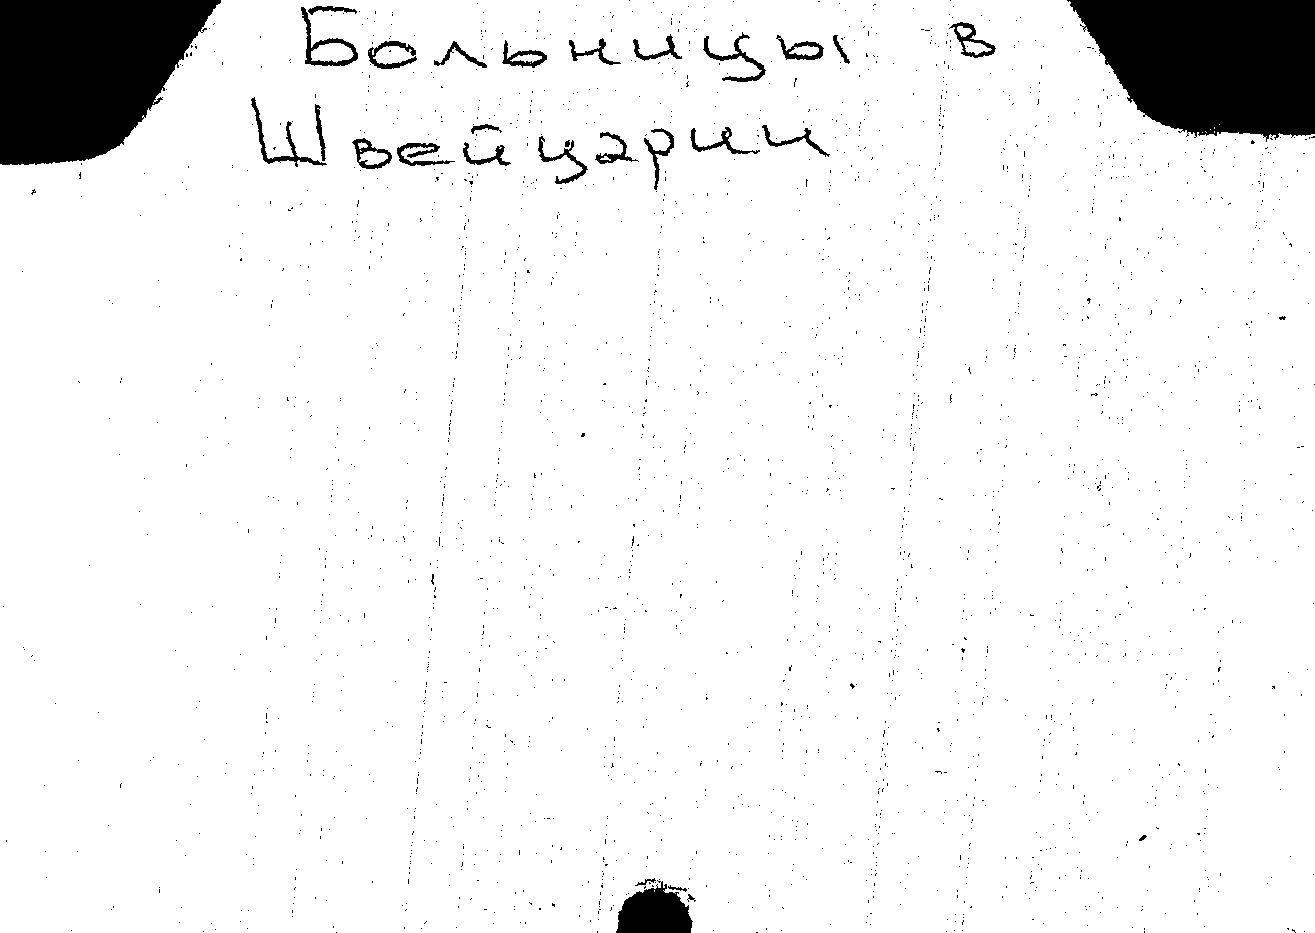 Больницы в
Швейцарии